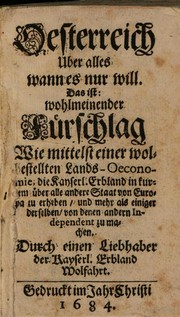 Oesterreich
Uber alles
wann es nur will.
Das ist:
wohlmeinender
Fürschlag
Wie mittelst einer wol-
estellten Lands-Oecono-
mie, die Kayserl. Erbland in kur-
zem über alle andere Staat von Euro-
pa zu erheben / und mehr als einiger
derselben / von denen andern In-
dependent zu ma-
chen.
Durch einen Liebhaber
der Kayserl. Erbland
Wolfahrt.
Gedruckt im Jahr Christi
1684.